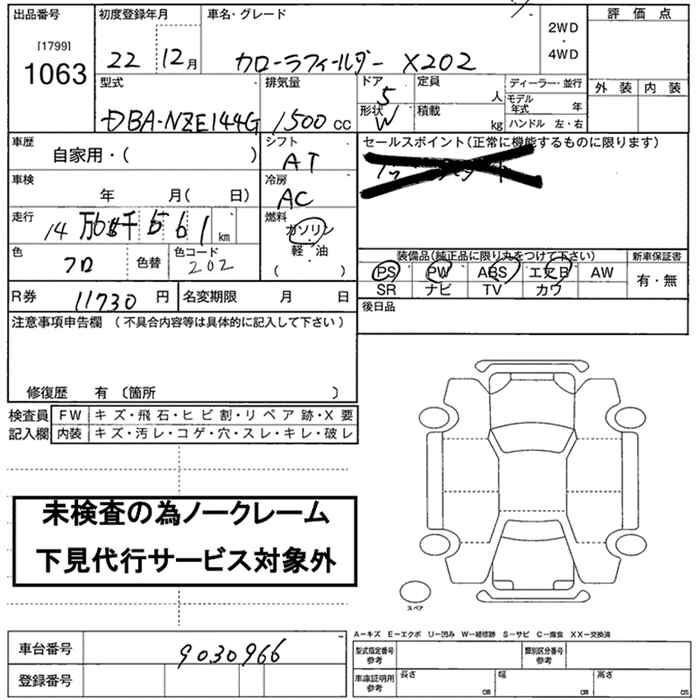 出品番号 初度登録年月 車名・グレード 評価点
[1799]
1063 22 12月 カローラフィールダー X202 2WD・4WD
外装 内装
型式 排気量 ドア 定員 ディーラー・並行
DBA-NZE144G 1500 CC 5 人 モデル年式 年
形状 W 積載 kg ハンドル 左・右
車歴 シフト セールスポイント(正常に機能するものに限ります)
自家用・( ) AT
車検 冷房
年 月( 日) AC
走行 燃料
14万 千561km ガソリン
軽・油
( )
色 色替 色コード
クロ 202
装備品(純正品に限り丸をつけて下さい) 新車保証書
PS PW ABS エアB AW 有・無
SR ナビ TV カワ
R券 11730円 名変期限 月 日 後日品
注意事項申告欄 (不具合内容等は具体的に記入して下さい)
修復歴 有 〔箇所 〕
検査員 FW キズ・飛石・ヒビ割・リペア跡・X要
記入欄 内装 キズ・汚レ・コゲ・穴・スレ・キレ・破レ
未検査の為ノークレーム
下見代行サービス対象外
スペア
A−キズ E−エクボ U−凹み W−補修跡 S−サビ C−腐食 XX−交換済
車台番号 9030966 型式指定番号 参考 類別区分番号 参考
登録番号 車庫証明用 参考 長さ cm 幅 cm 高さ cm